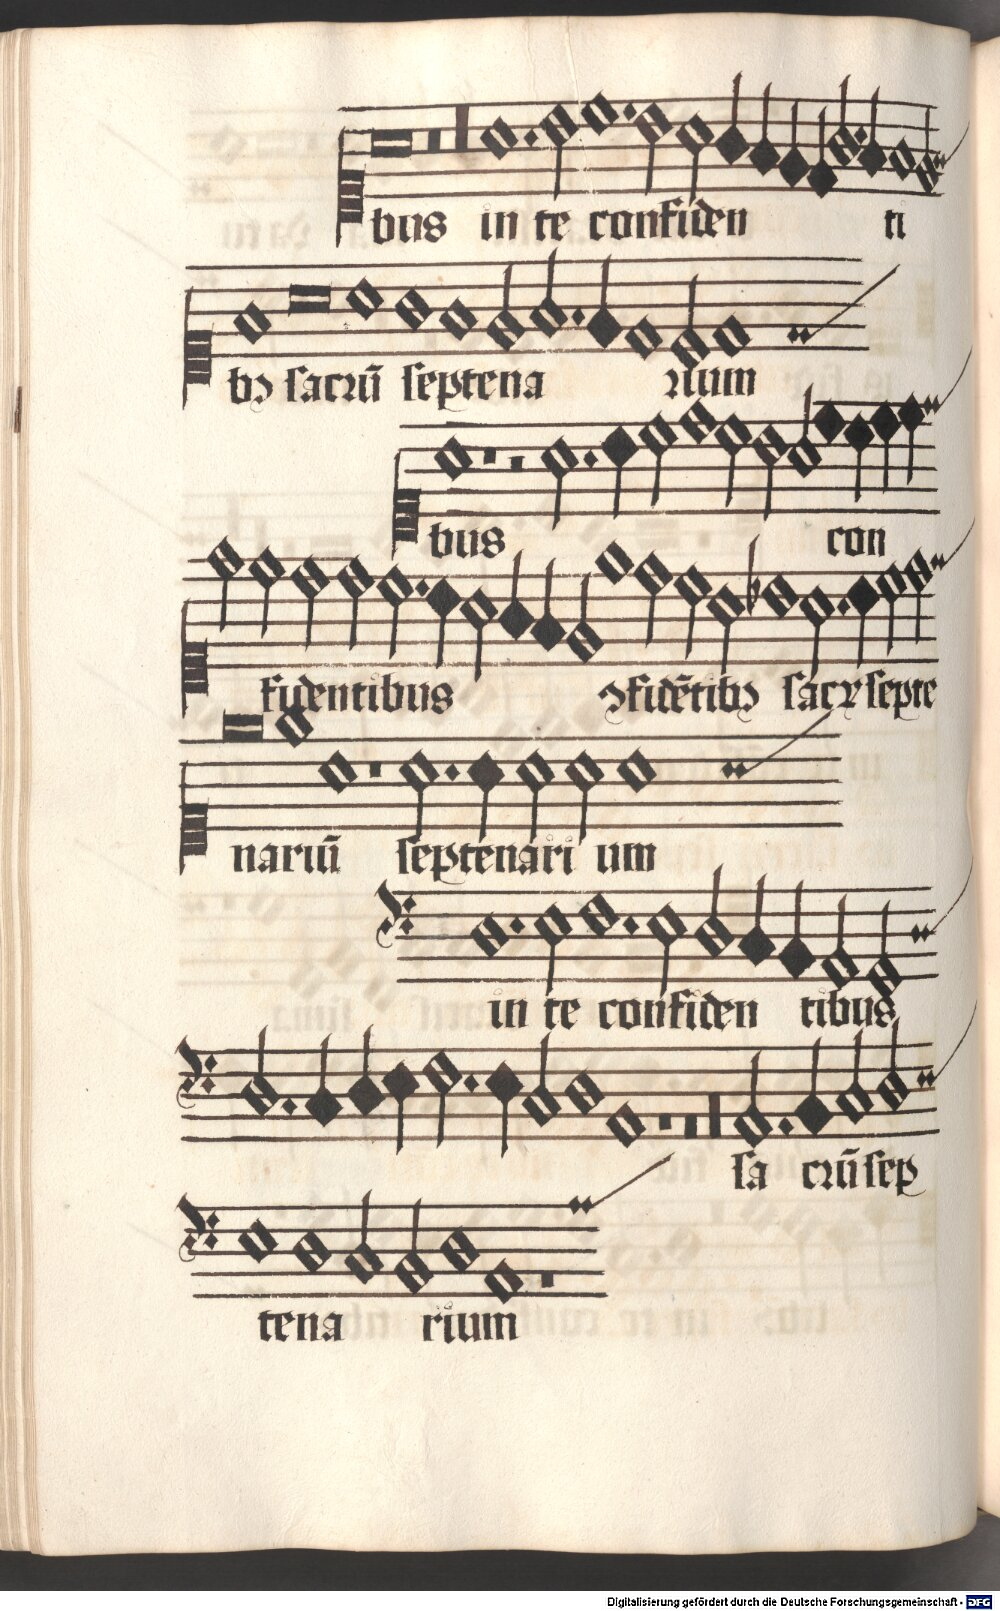 bus in te confiden ti
bꝰ sacrũ septena rium
bus con
fidentibus ꝯfidẽtibꝰ sacꝝ septe
nariũ septenari um
in te confiden tibus
sa crũ sep
tena rium
Digitalisierung gefördert durch die Deutsche Forschungsgemeinschaft - DFG